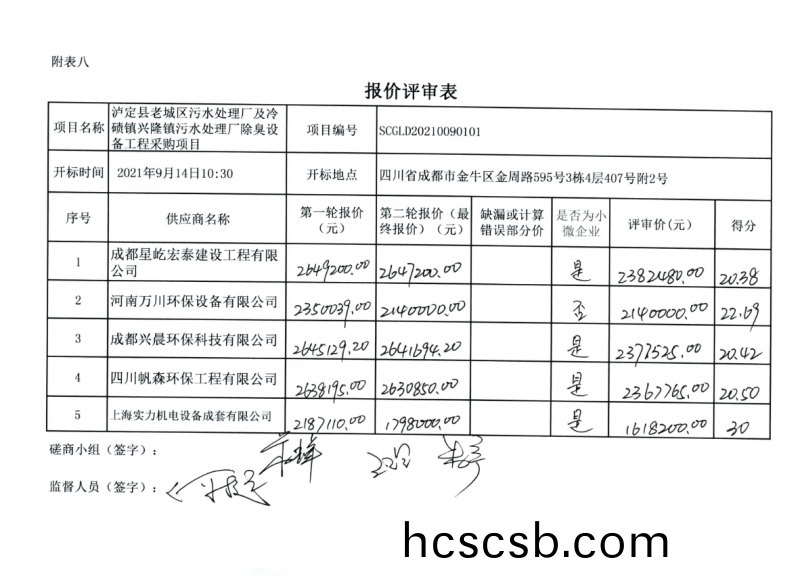 附表八
报价评审表
项目名称 泸定县老城区污水处理厂及冷
碛镇兴隆镇污水处理厂除臭设
备工程采购项目 项目编号 SCGLD20210090101
开标时间 2021年9月14日10:30 开标地点 四川省成都市金牛区金周路595号3栋4层407号附2号
序号 供应商名称 第一轮报价
（元） 第二轮报价（最
终报价）（元） 缺漏或计算
错误部分价 是否为小
微企业 评审价(元) 得分
1 成都星屹宏泰建设工程有限
公司 2649200.00 2647200.00 是 2382480.00 20.38
2 河南万川环保设备有限公司 2350039.00 2140000.00 否 2140000.00 22.69
3 成都兴晨环保科技有限公司 2645129.20 2641694.20 是 2377525.00 20.42
4 四川帆森环保工程有限公司 2638195.00 2630850.00 是 2367765.00 20.50
5 上海实力机电设备成套有限公司 2187110.00 1798000.00 是 1618200.00 30
磋商小组（签字）：
监督人员（签字）：
hcscsb.com